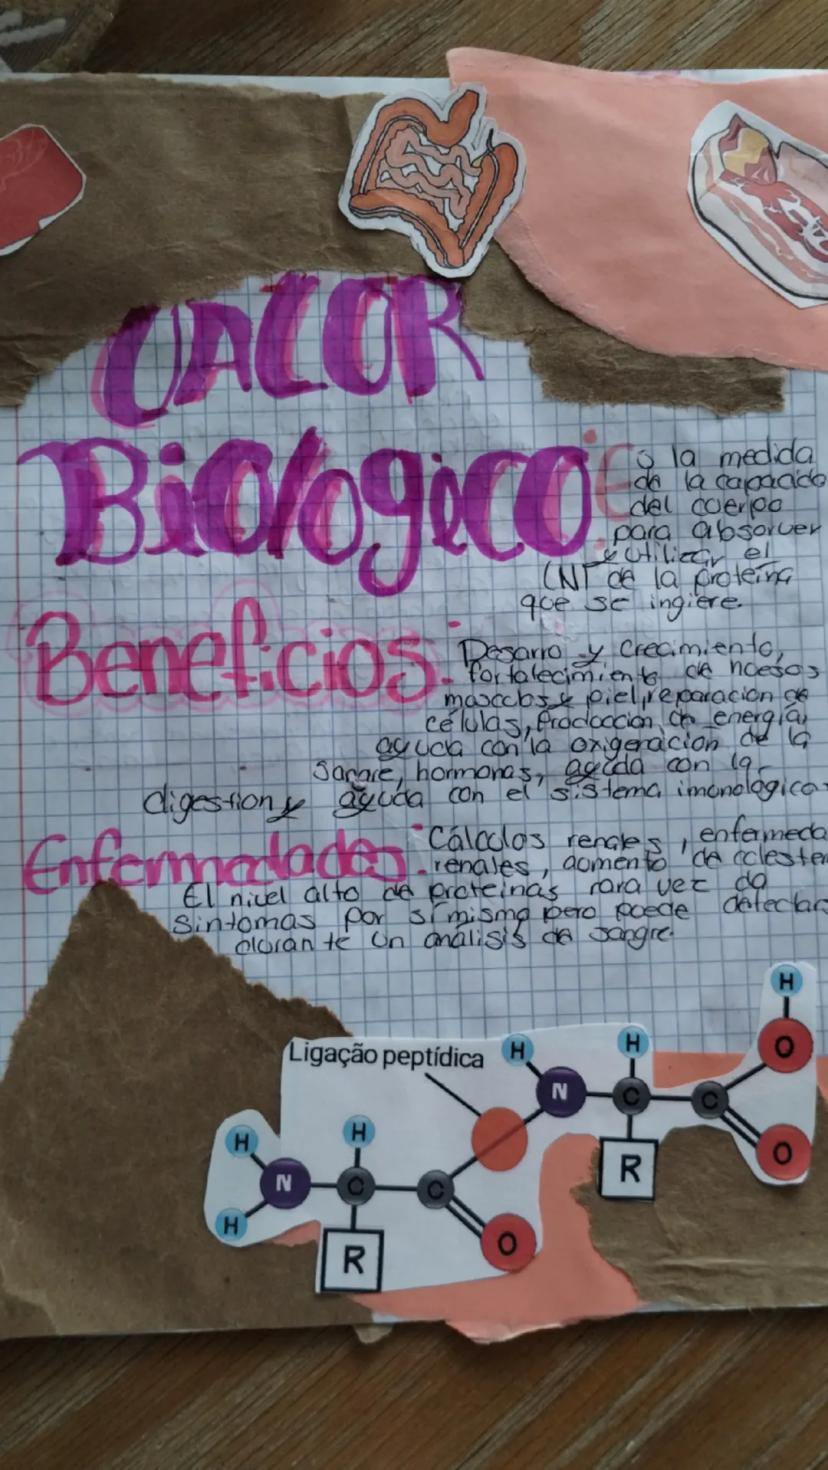 VALOR
Biologico: Es la medida
de la capacidad
del cuerpo
para absorver
y utilizar el
(N) de la proteína
que se ingiere.
Beneficios: Desarro y crecimiento,
fortalecimiento de huesos
musculos y piel, reparacion de
células, Produccion de energía,
ayuda con la oxigenacion de la
sangre, hormonas, ayuda con la
digestion y ayuda con el sistema imunologico.
Enfermedades: Cálculos renales, enfermeda
renales, aumento de colester
El nivel alto de proteinas rara vez da
sintomas por sí mismo pero puede detectars
durante un análisis de sangre.
H
Ligação peptídica H H O
N C C
H H O
N C C R
H O
R